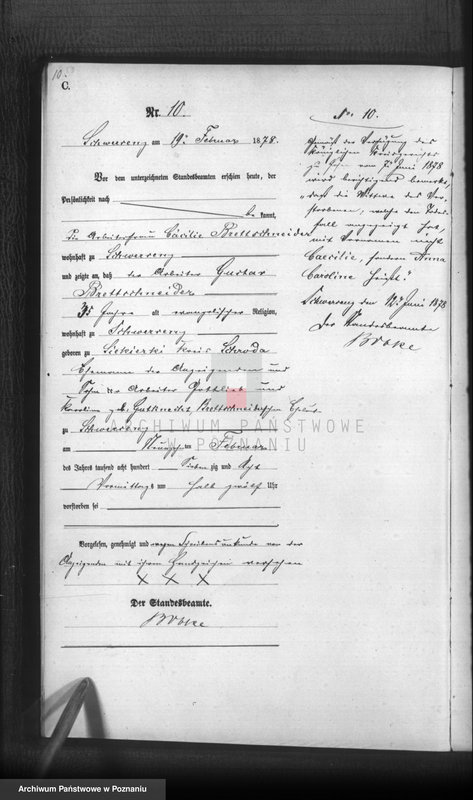 10.
C.
Nr. 10.
Schwersenz am 19ten Februar 1878.
Vor dem unterzeichneten Standesbeamten erschien heute, der
Persönlichkeit nach
be kannt,
die Arbeiterfrau Cäcilie Brettschneider
wohnhaft zu Schwersenz
und zeigte an, daß der Arbeiter Gustav
Brettschneider
35 Jahre alt evangelischer Religion,
wohnhaft zu Schwersenz
geboren zu Siekierki Kreis Schroda
Ehemann der Anzeigenden und
Sohn der Arbeiter Gottlieb und
Karoline geb. Gutknecht Brettschneiderschen Eheleute
zu Schwersenz
am Februar
des Jahres tausend acht hundert Sieben zig und Acht
Vormittags um halb zwölf Uhr
verstorben sei
Vorgelesen, genehmigt und wegen Schreibensunkunde von der
Anzeigenden mit ihrem Handzeichen versehen
X X X
Der Standesbeamte.
No 10.
Gemäß der Verfügung des
Königlichen Kreisgerichts
zu vom 7. Juni 1878
wird berichtigend bemerkt,
"daß die Wittwe des Ver-
storbenen, welche den Todes-
fall angezeigt hat,
mit Vornamen nicht
Caecilie, sondern Anna
Caroline heißt."
Schwersenz den 12ten Juni 1878
Der Standesbeamte
ARCHIWUM PAŃSTWOWE
W POZNANIU
Archiwum Państwowe w Poznaniu